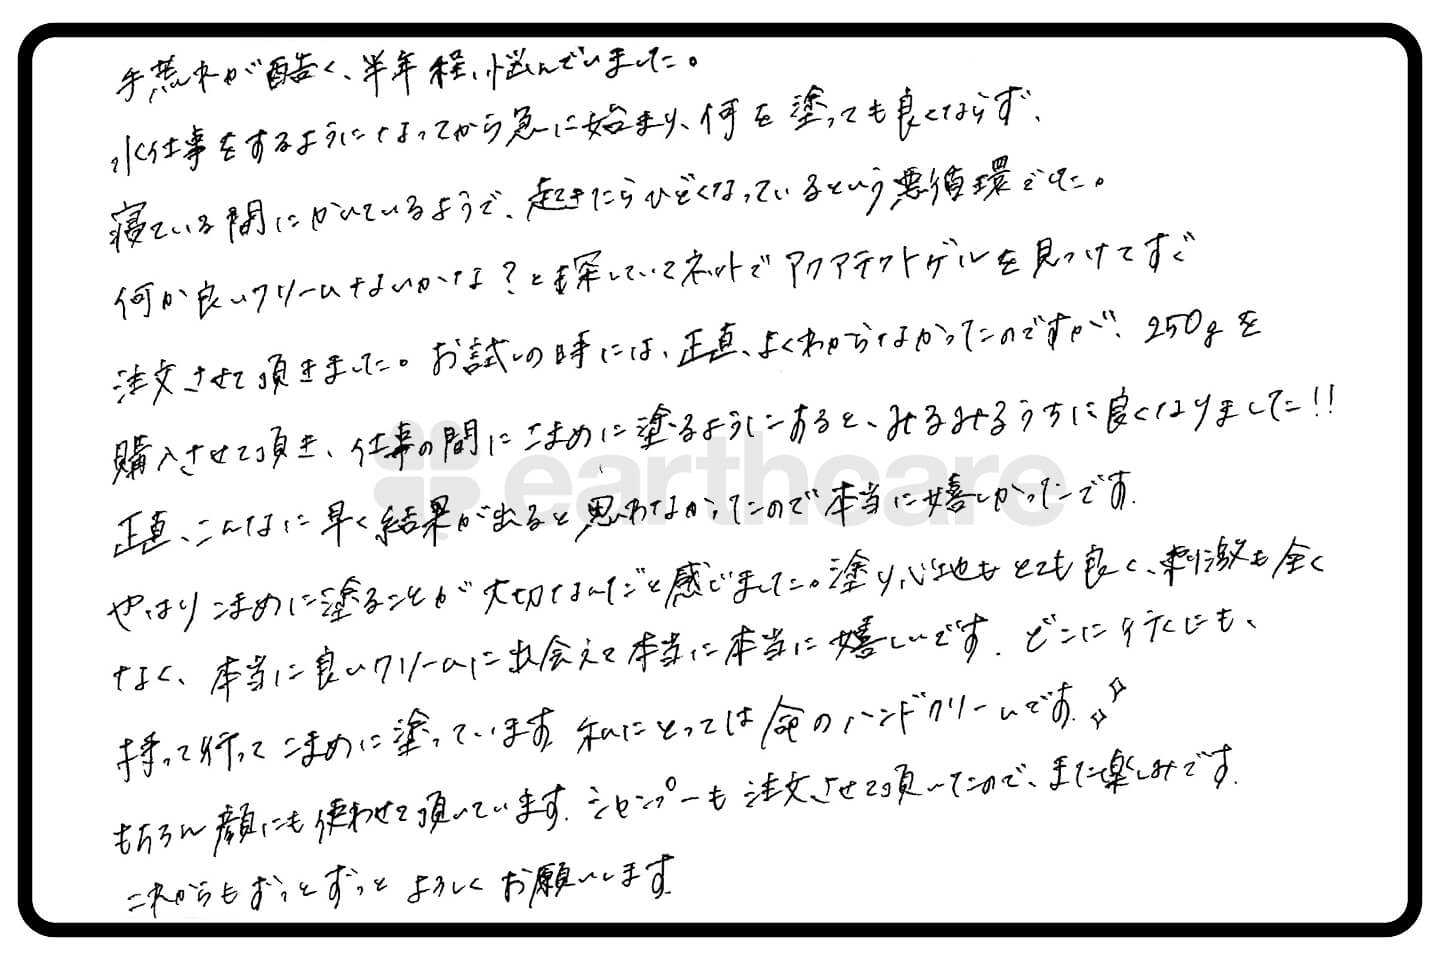 手荒れが酷く、半年程、悩んでいました。
水仕事をするようになってから急に始まり、何を塗っても良くならず、
寝ている間にかいているようで、起きたらひどくなっているという悪循環でした。
何か良いクリームないかな？と探していてネットでアクアテクトゲルを見つけてすぐ
注文させて頂きました。お試しの時には、正直、よくわからなかったのですが、250gを
購入させて頂き、仕事の間にこまめに塗るようにすると、みるみるうちに良くなりました!!
earthcare
正直、こんなに早く結果が出ると思わなかったので本当に嬉しかったです.
やはりこまめに塗ることが大切なんだと感じました。塗り心地もとても良く、刺激も全く
なく、本当に良いクリームに出会えて本当に本当に嬉しいです. どこに行くにも、
持って行ってこまめに塗っています. 私にとっては命のハンドクリームです.
もちろん顔にも使わせて頂いています. シャンプーも注文させて頂いたので、また楽しみです.
これからもずっとずっとよろしくお願いします.